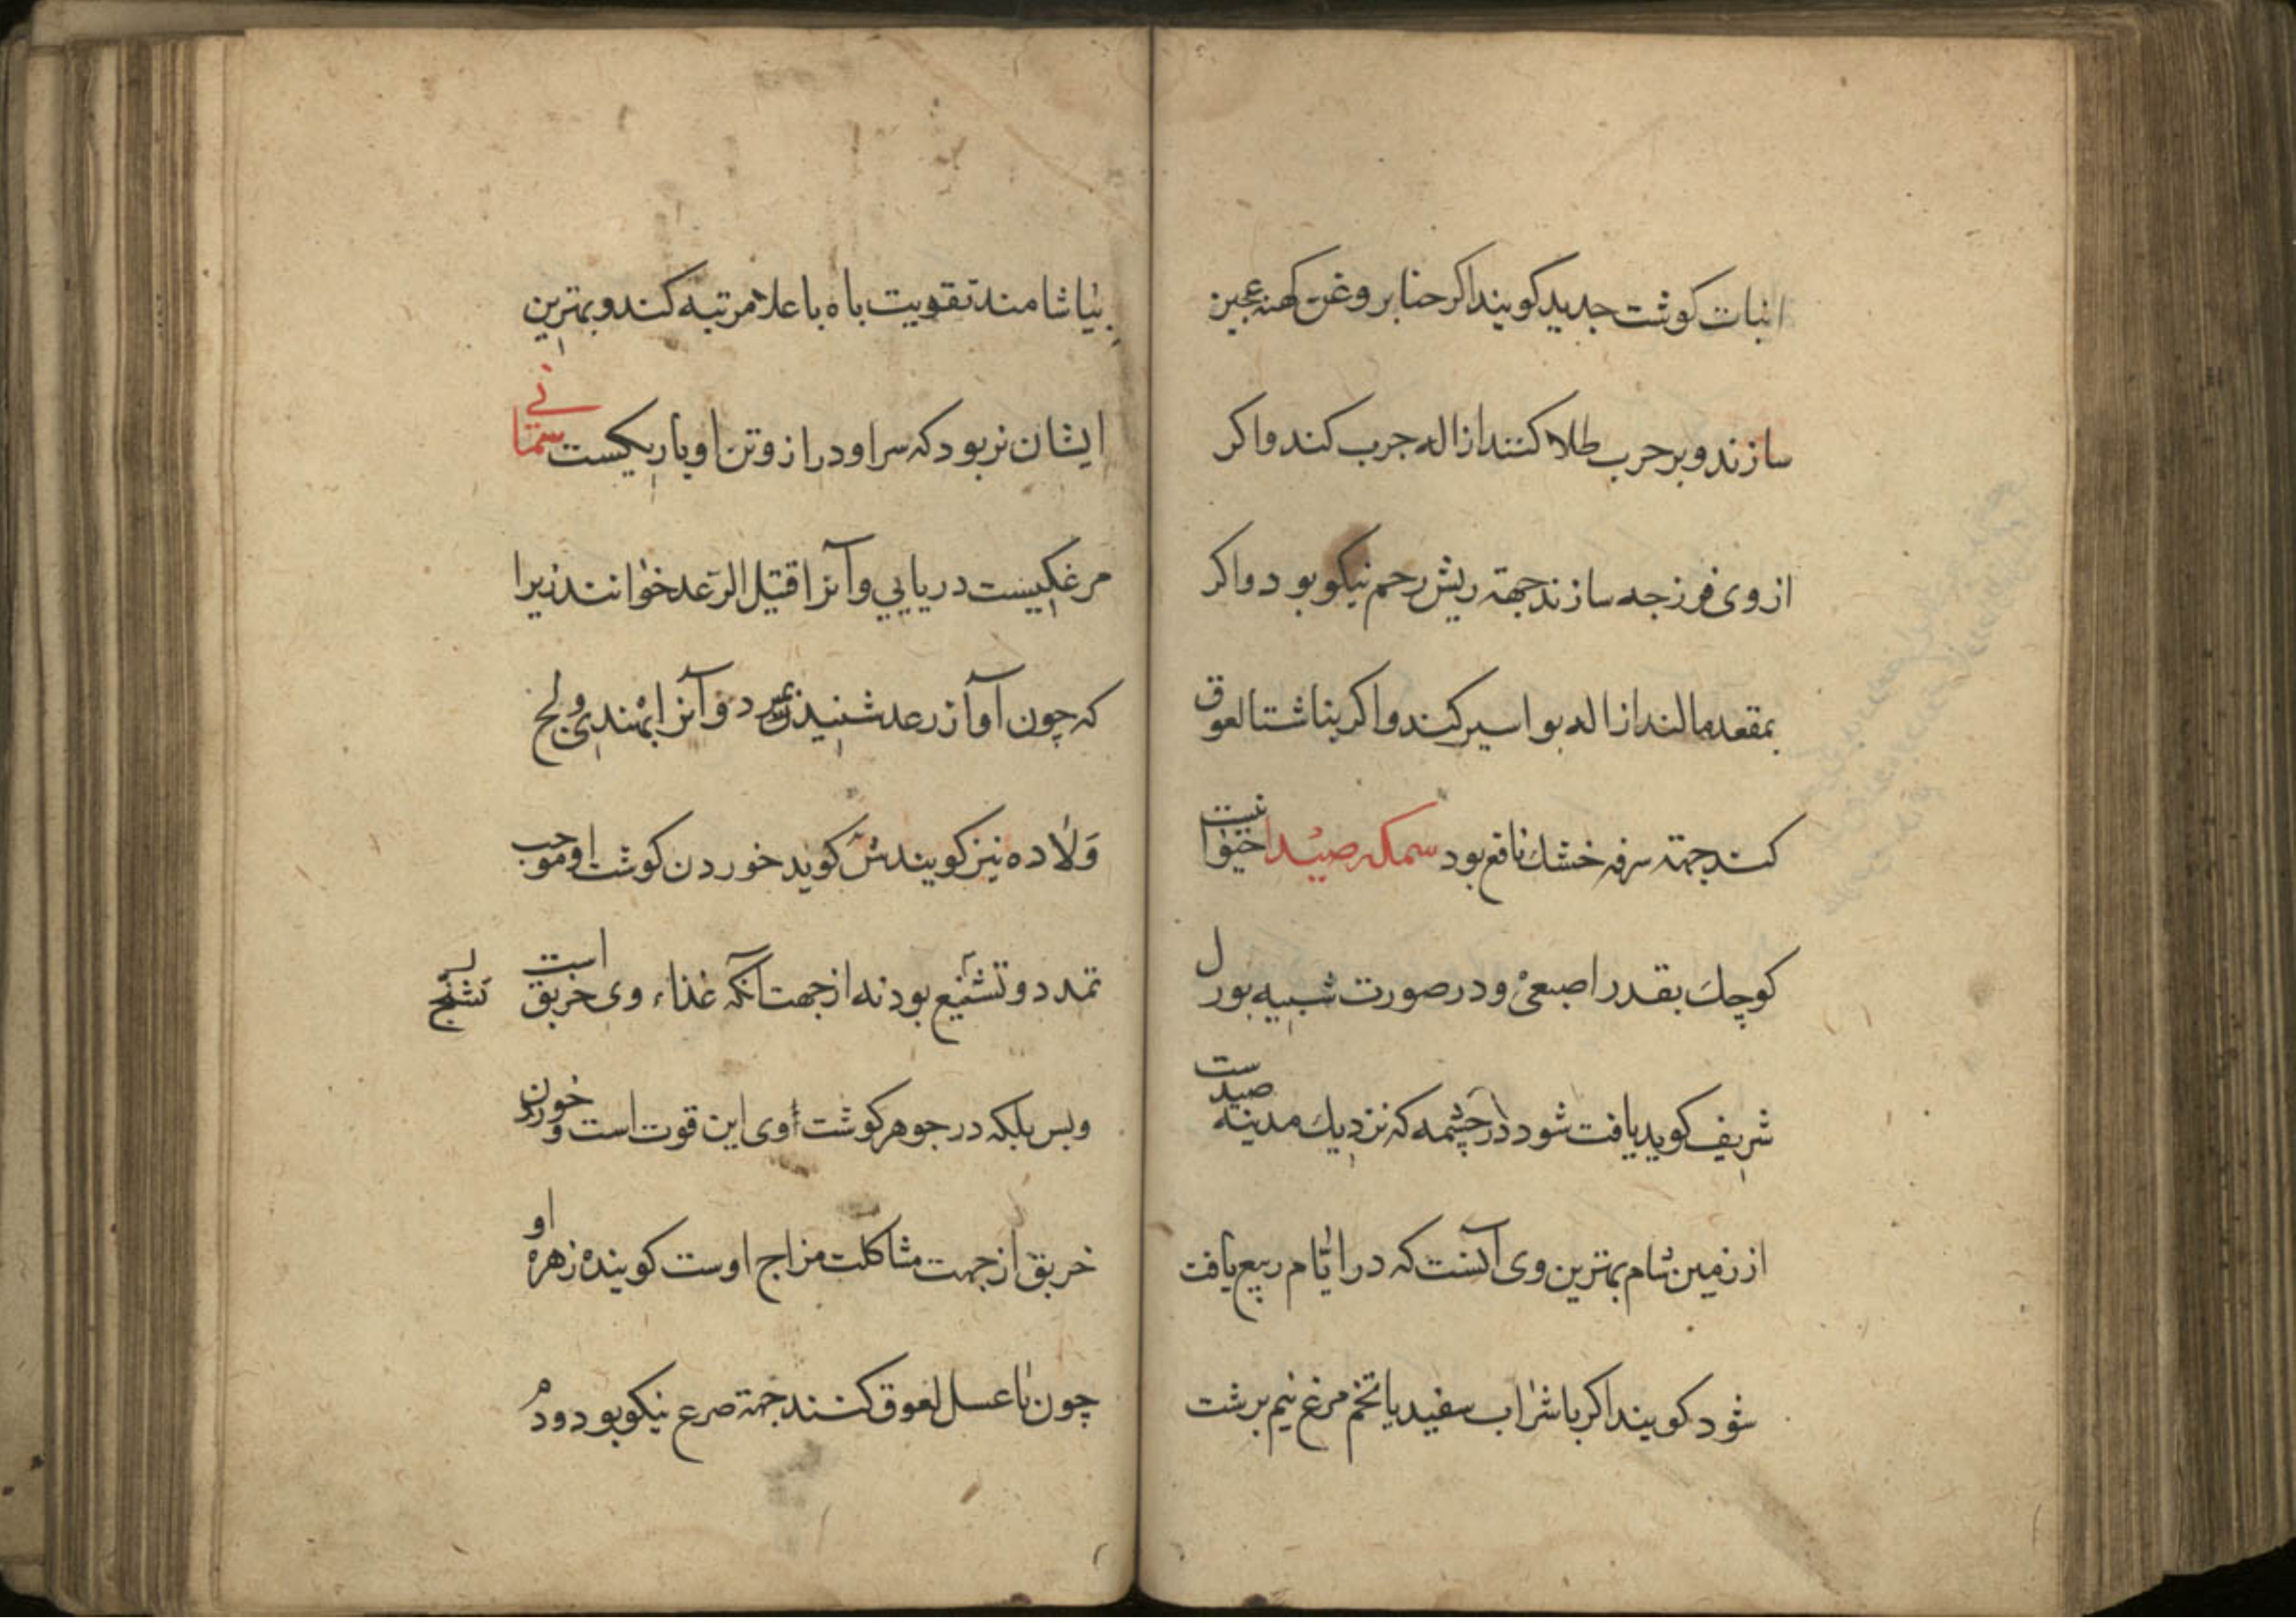 انبات کوشت جدید کویند اکر حنا بروغن کهنه عجین
سازند و بر حرب طلا کنند ازاله جرب کند و اکر
از وی فرزجه سازند جهة ریش رحم نیکو بود و اکر
بمقعد مالند ازاله بواسیر کند و اکر بناشتا لعوق
کنند جهة سرفه خشك نافع بود سمکه صیدا حیوانیست
کوچك بقدر اصبعی و در صورت شبیه بورل
شریف کوید یافت شود در چشمه که نزدیك مدینه صیدست
از زمین شام بهترین وی آنست که در ایام ربیع یافت
شود کویند اکر با شراب سفید یا تخم مرغ نیم برشت
بیاشامند تقویت باه باعلا مرتبه کند و بهترین
ایشان نر بود که سر او دراز و تن او باریکست سمانی
مرغکیست دریایی و آنرا قتیل الرعد خوانند زیرا
که چون آواز رعد شنید بمیرد و آنرا بهندی ولج
ولاده نیز کویند ش کوید خوردن کوشت او موجب
تمدد و تشنیع بود نه از جهت آنکه غذاء وی خربق است
تشنج
و بس بلکه در جوهر کوشت وی این قوت است و خوردن
خربق از جهت مشاکلت مزاج اوست کویند زهره او
چون با عسل لعوق کنند جهة صرع نیکو بود و دم